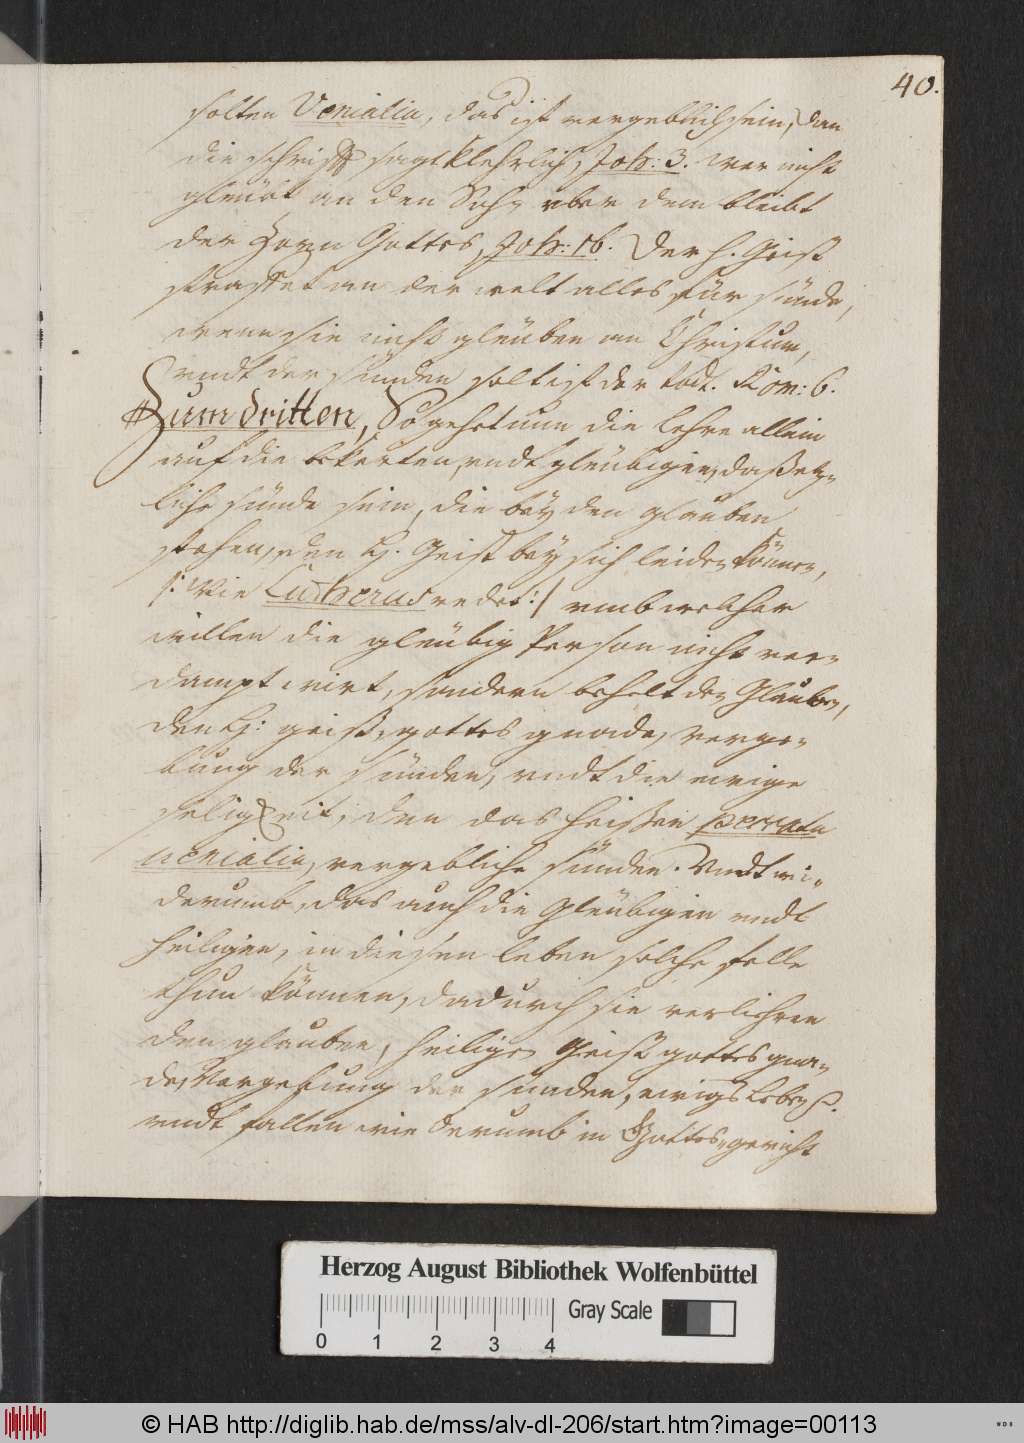 40.
solten Venialia, das ist vergeblich sein, dan
die schrifft sagt klehrlich, Joh: 3. wer nicht
gleubt an den Sohn vber dem bleibt
der Zorn Gottes, Joh: 16. Der h. Geist
straffet an der welt alles für sünde,
wenn sie nicht gleuben an Christum,
vndt der sünden solt ist der todt. Rom: 6.
Zum dritten, So gehet nun die lehre allein
auf die bekerten, vndt gleubigen, daß etz-
liche sünde sein, die bey den glauben
stehen, den H. Geist bey sich leiden können,
/: wie Lutherus redet :/ vmb welcher
willen die gleubig Person nicht ver-
dampt wirt, sondern behelt den Glauben,
den H: geist, gottes gnade, verge-
bung der sünden, vndt die ewige
seligkeit, den das heißen peccata
uenialia, vergebliche sünden. Vndt wi-
derumb, das auch die Gleubigen vndt
heiligen, in diesen leben solche felle
thun können, dadurch sie verliehren
den glauben, heiligen Geist gottes gna-
de, Vergebung der sünden, ewigs Leben
vndt fallen wiederumb in Gottes gericht
Herzog August Bibliothek Wolfenbüttel
Gray Scale
0 1 2 3 4
© HAB http://diglib.hab.de/mss/alv-dl-206/start.htm?image=00113